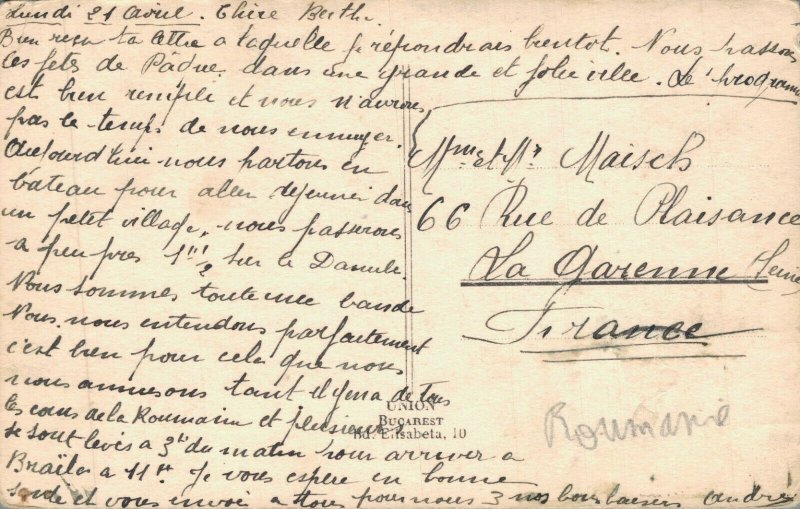 Lundi 21 Avril. Chère Berthe
Bien reçu ta lettre a laquelle je répondrais bientot. Nous passons
les fetes de Pâque dans une grande et jolie ville. Le programme
est bien remplie et nous n'aurons
pas le temps de nous ennuyer.
Aujourd'hui nous partons en
bateau pour aller dejeuner dans
un petit village, nous passerons
a peu pres 1h½ sur le Danube.
Nous sommes toute une bande
Nous nous entendons parfaitement
c'est bien pour cela que nous
nous amusons tant il y en a de tous
les coins de la Roumanie et plusieurs
se sont levés a 3h du matin pour arriver a
Braïla a 11h. Je vous espère en bonne
santé et vous envoi a tous pour nous 3 nos bons baisers André
Mme et Mr Maisch
66 Rue de Plaisance
La Garenne (Seine)
France
UNION
BUCAREST
Bd. Elisabeta, 10
Roumanie